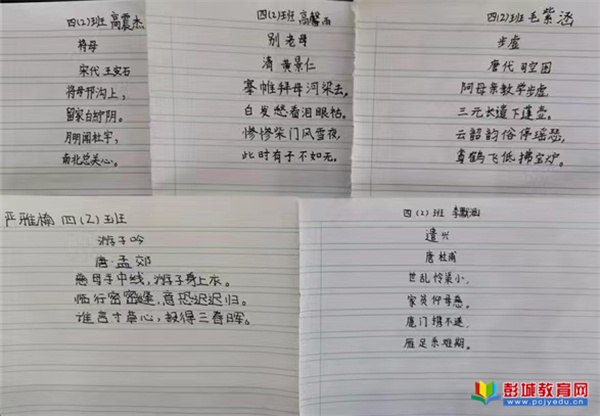 四(2)班 高震杰
将母
宋代 王安石
将母邗沟上,
留家白纻阴。
月明闻杜宇,
南北总关心。
四(2)班 高馨雨
别老母
清 黄景仁
搴帏拜母河梁去,
白发愁看泪眼枯。
惨惨柴门风雪夜,
此时有子不如无。
四(2)班 毛紫涵
步虚
唐代 司空图
阿母亲教学步虚,
三元长遣下蓬壶。
云韶韵俗停瑶瑟,
鸾鹤飞低拂宝炉。
严雅楠 四(2)班
游子吟
唐·孟郊
慈母手中线,游子身上衣。
临行密密缝,意恐迟迟归。
谁言寸草心,报得三春晖。
四(2)班 李默涵
遣兴
唐 杜甫
世乱怜渠小,
家贫仰母慈。
鹿门携不遂,
雁足系难期。
彭城教育网
www.pcjyedu.cn